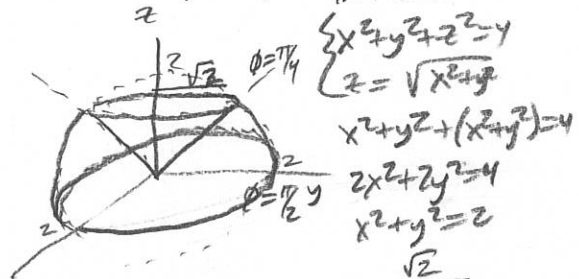 z
2
√2
φ=π/4
2
φ=π/2
y
2
{x²+y²+z²=4
z=√x²+y²
x²+y²+(x²+y²)=4
2x²+2y²=4
x²+y²=2
√2